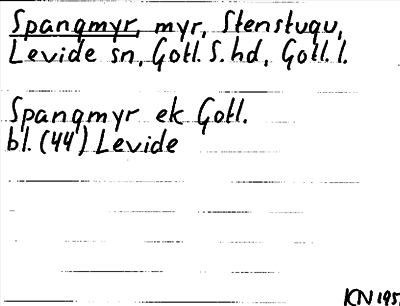 Spangmyr, myr, Stenstugu,
Levide sn, Gotl. S. hd, Gotl. l.
Spangmyr ek Gotl.
bl. (44) Levide
KN 195